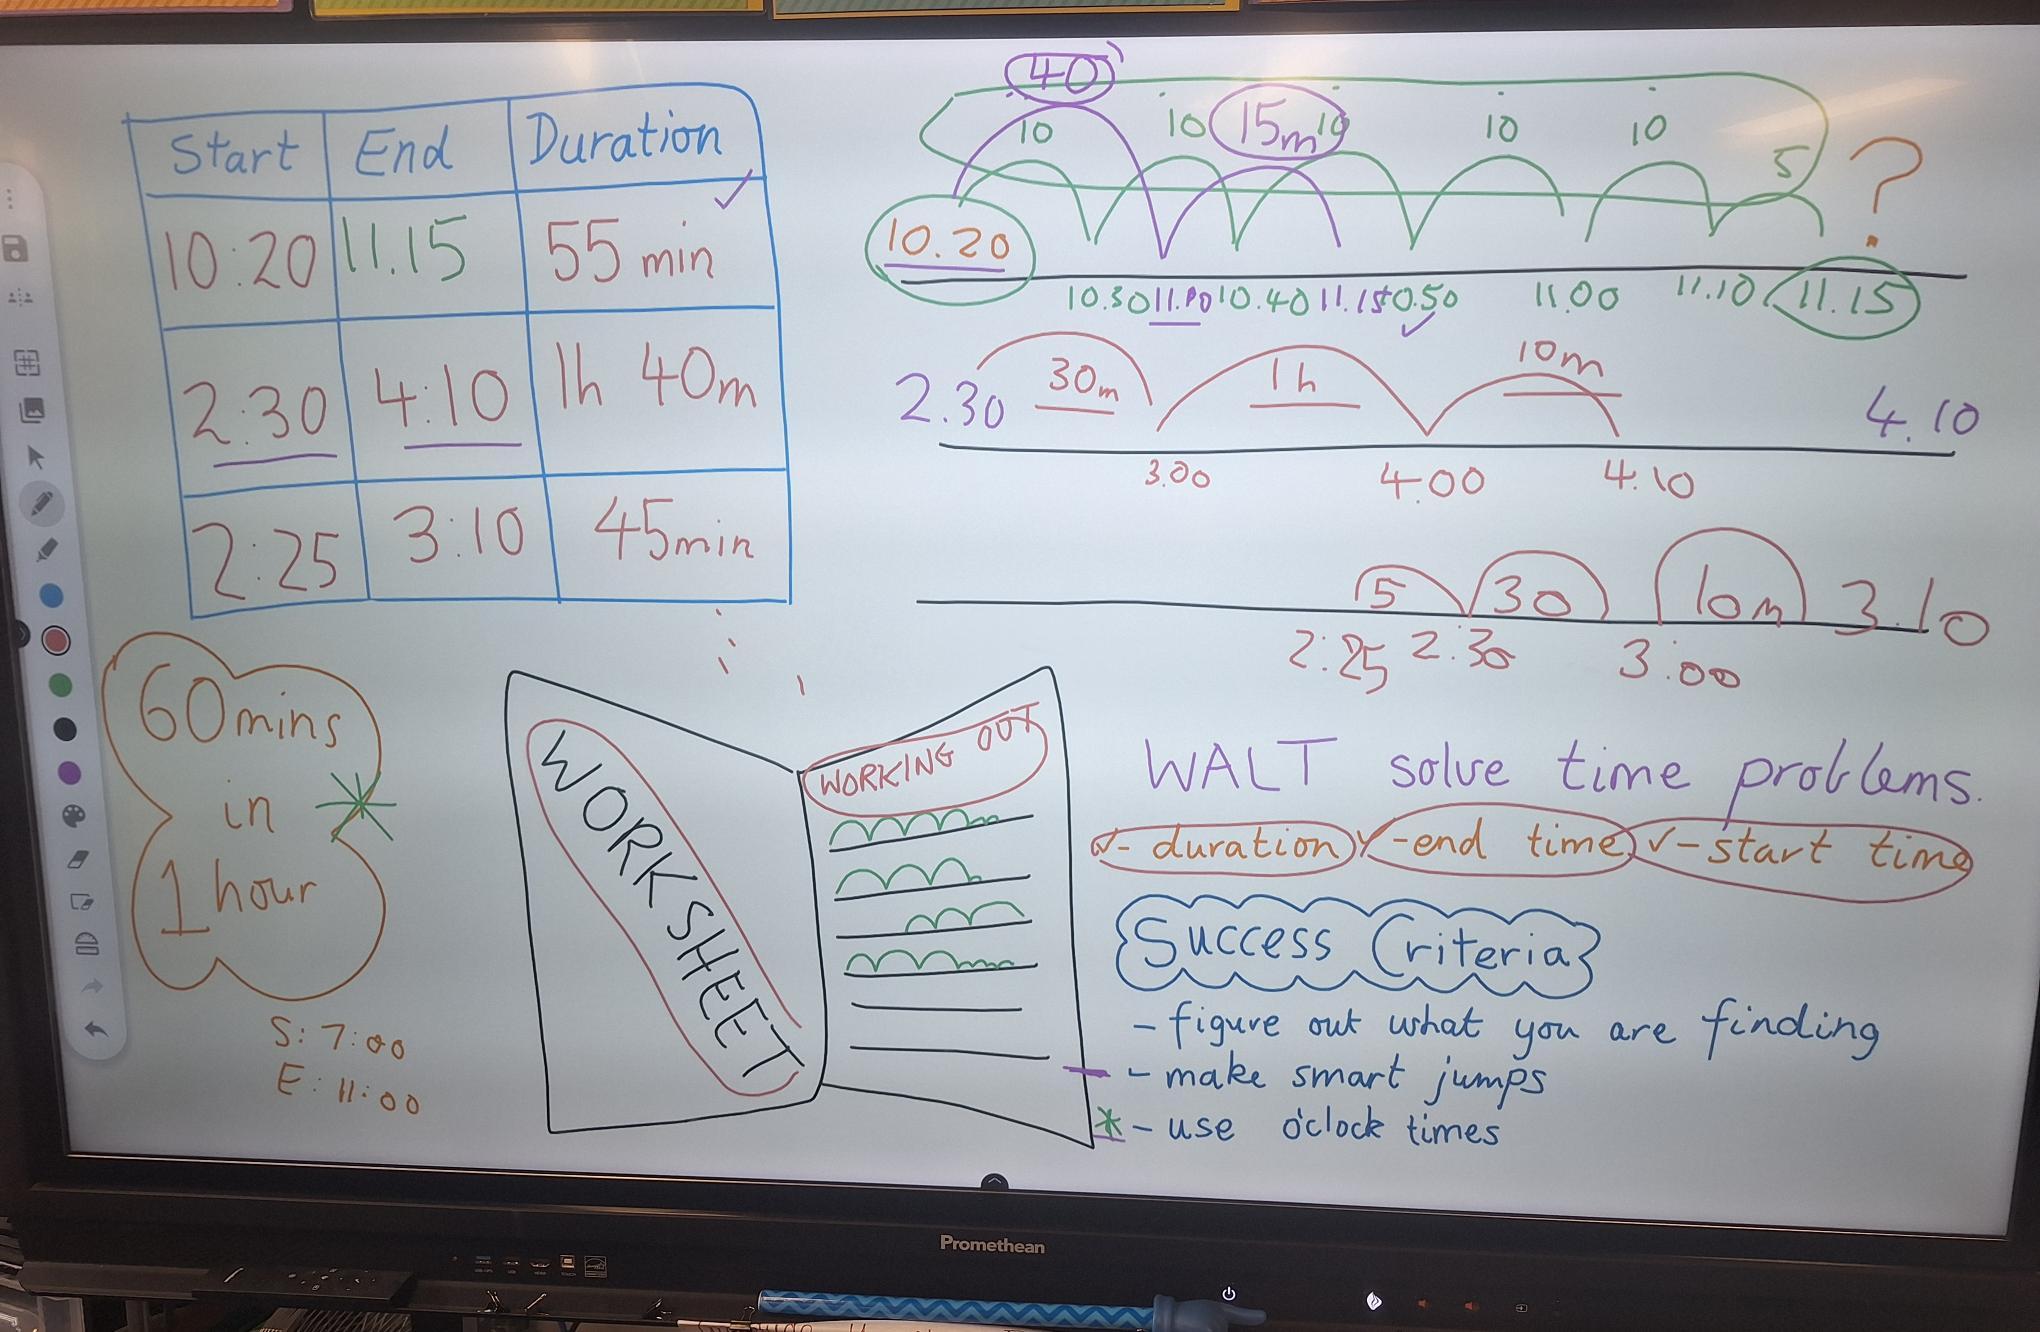 Start End Duration
10:20 11.15 55 min
2:30 4:10 1h 40m
2:25 3:10 45min
40
10 10 15m 10 10 10 5 ?
10.20
10.30 11.00 10.40 11.15 10.50 11.00 11.10 11.15
30m 1h 10m
2.30 4.10
3.00 4.00 4.10
5 30 10m 3.10
2:25 2:30 3:00
60mins
in
1 hour
S: 7:00
E: 11:00
WORKSHEET
WORKING OUT
WALT solve time problems.
- duration - end time - start time
Success Criteria
- figure out what you are finding
- make smart jumps
- use o'clock times
Promethean